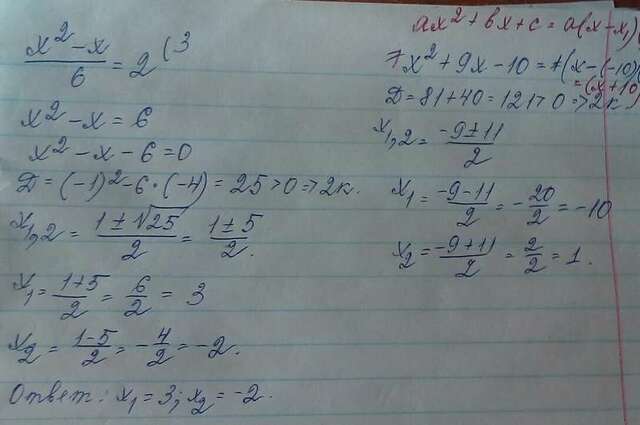 x² - x / 6 = 2 (3
x² - x = 6
x² - x - 6 = 0
D = (-1)² - 6·(-4) = 25 > 0 => 2к.
x₁,₂ = 1 ± √25 / 2 = 1 ± 5 / 2.
x₁ = 1+5 / 2 = 6 / 2 = 3
x₂ = 1-5 / 2 = -4 / 2 = -2.
Ответ: x₁ = 3; x₂ = -2.
ax² + bx + c = a(x - x₁)(
x² + 9x - 10 = (x - (-10)(
= (x + 10)
D = 81 + 40 = 121 > 0 => 2к.
x₁,₂ = -9 ± 11 / 2
x₁ = -9-11 / 2 = -20 / 2 = -10
x₂ = -9+11 / 2 = 2 / 2 = 1.